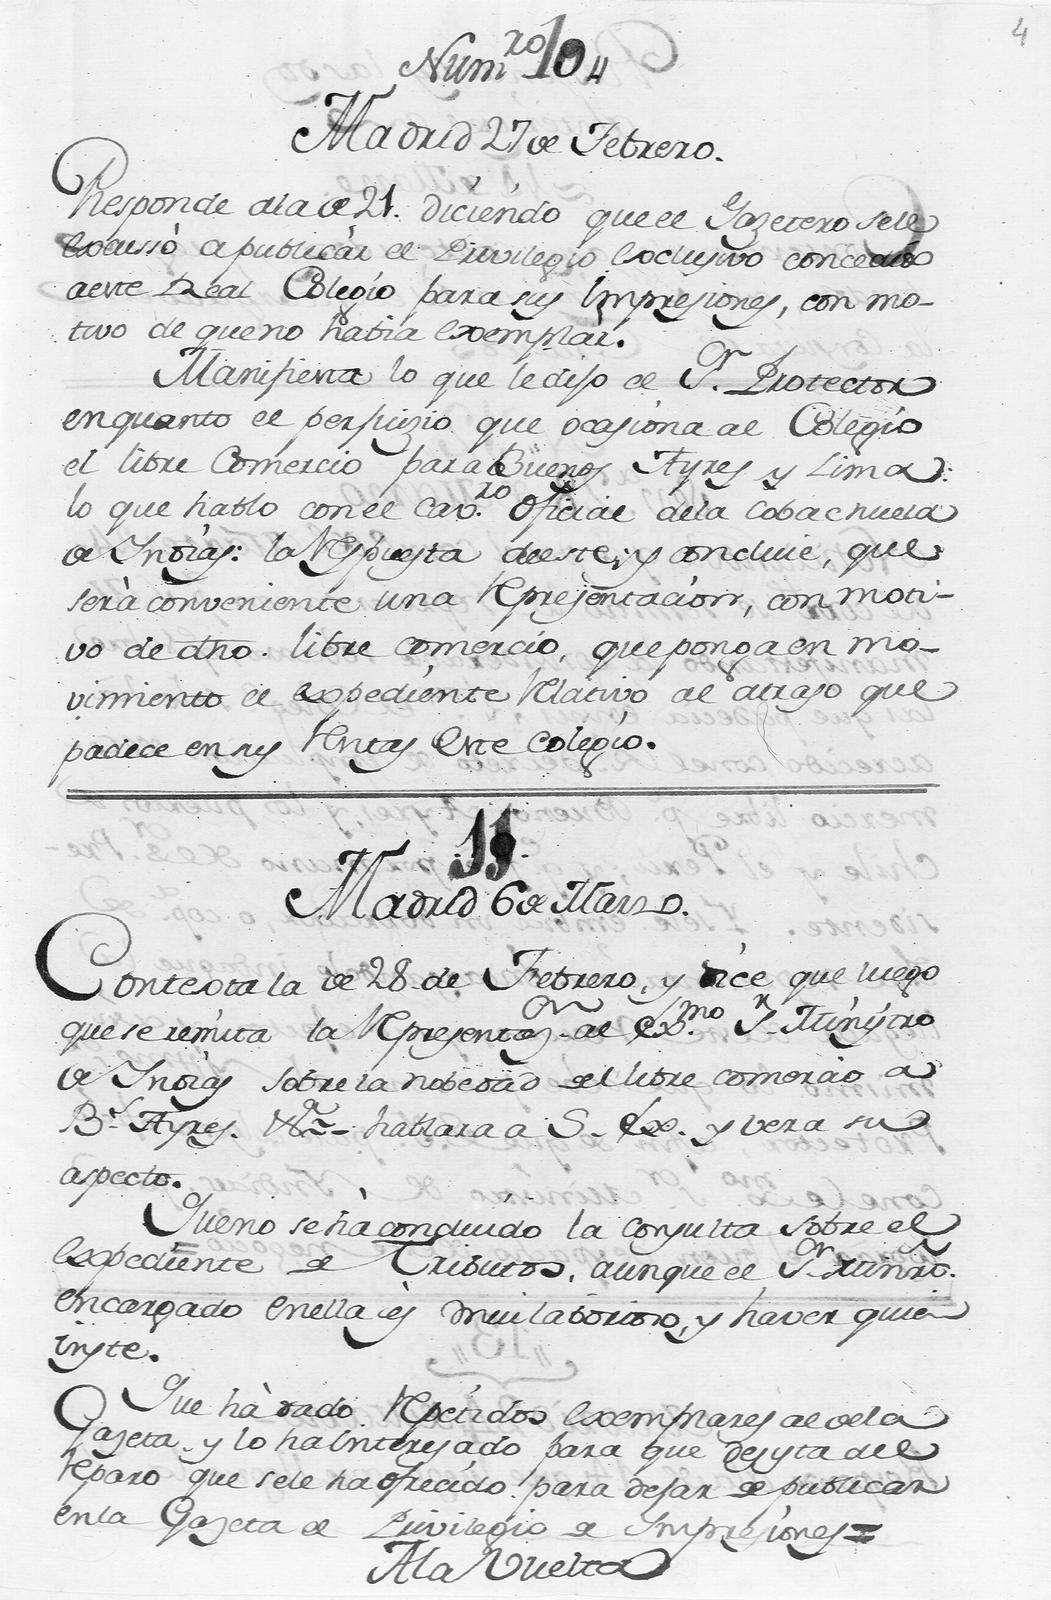 4
Num.ro 10,,
Madrid 27 de Febrero.
Responde ala de 21. diciendo que el Gazetero sele
excussò a publicàr el Privilegio exclusivo concedido
aeste Real Colegio para sus Impresiones, con mo-
tivo de queno habia exemplar.
Manifiesta lo que le dijo el S.or Protector
enquanto el perjuizio que ocasiona al Colegio
el libre Comercio para Buenos Ayres y Lima:
lo que hablo con el Cav.ro oficial dela Cobachuela
de Indias: la Respuesta deeste; y concluie, que
serà conveniente una Representacion, con moti-
vo de dho. libre comercio, que ponga en mo-
vimiento el expediente Relativo al atraso que
padece en sus Rentas este Colegio.
11.
Madrid 6 de Marzo.
Contexta la de 28 de Febrero, y dice que luego
que se remita la Representaz.on al Ex.mo S.r Ministro
de Indias sobre la nobedad del libre comercio a
B.s Ayres. hablara a S. Ex. y vera su
aspecto.
Que no se ha concluido la consulta sobre el
Expediente de Tributos, aunque el S.or Minro.
encargado en ella es mui laborioso, y haver quien
inste.
Que hà dado Repetidos exemplares al dela
Gazeta, y lo ha Interesado para que desista del
Reparo que sele ha ofrecido para dejar de publicar
en la Gazeta el Privilegio de Impresiones=
A la Vuelta